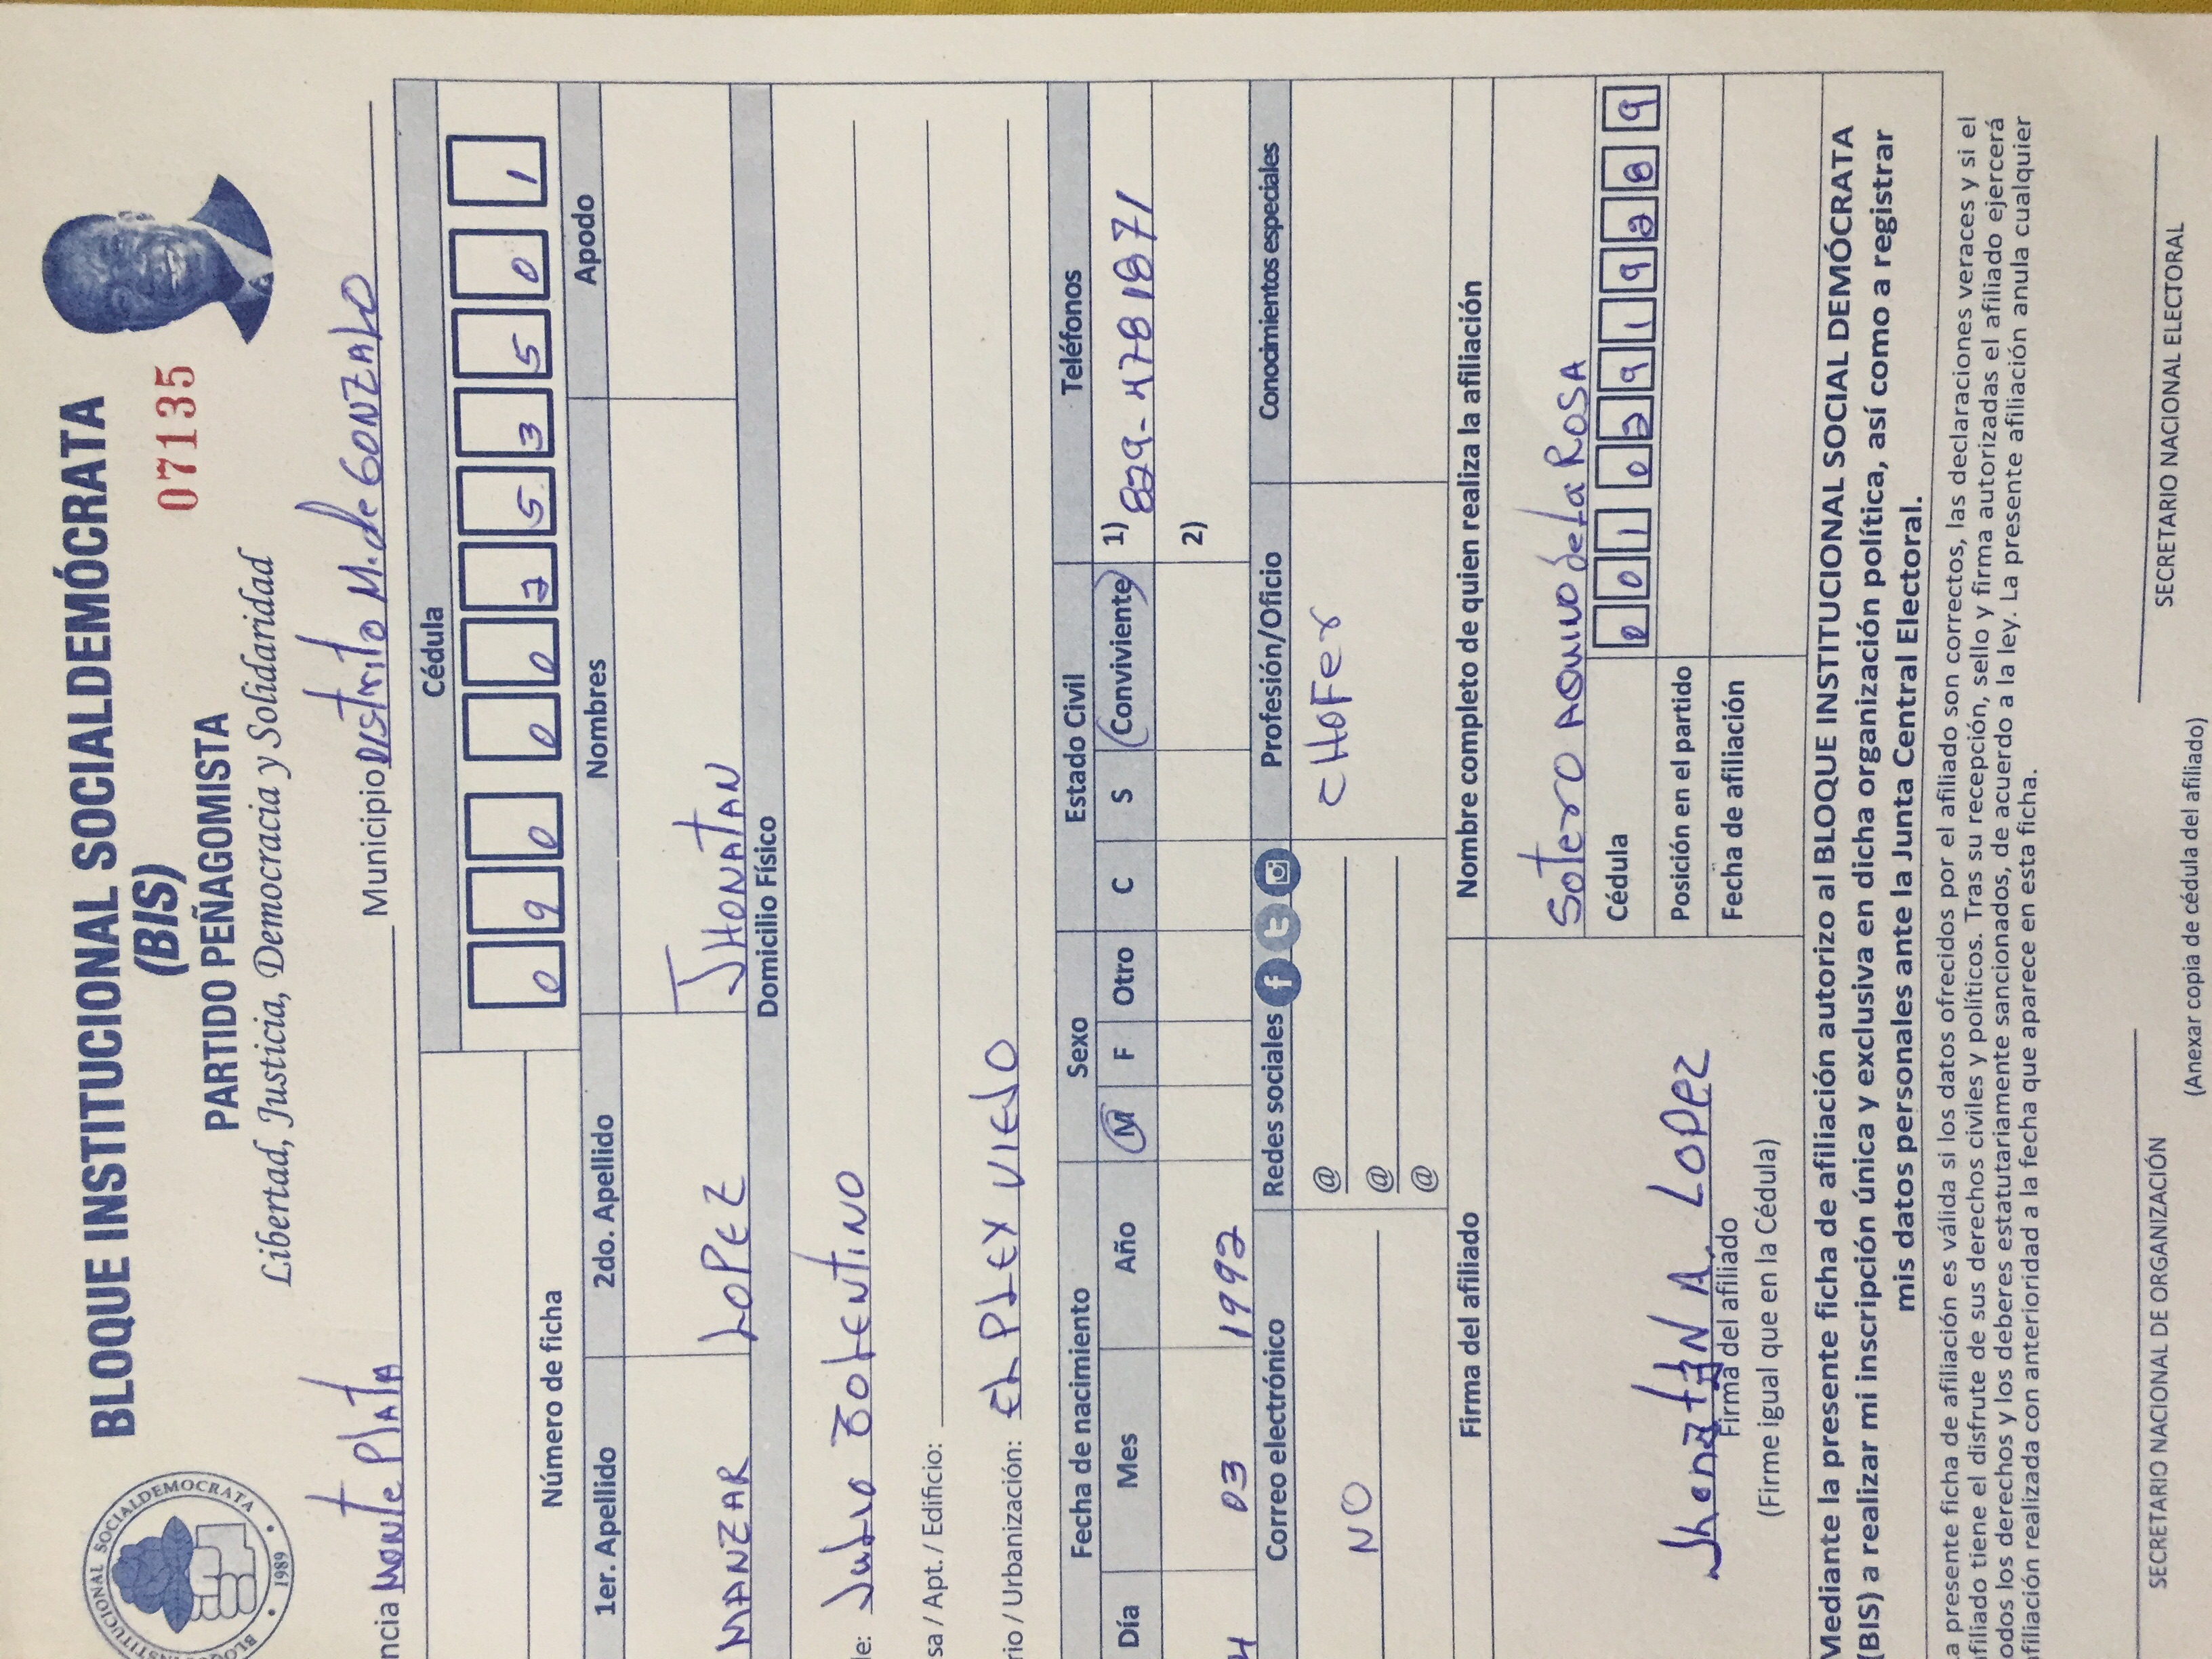 BLOQUE INSTITUCIONAL SOCIALDEMÓCRATA
(BIS)
PARTIDO PEÑAGOMISTA
07135
Libertad, Justicia, Democracia y Solidaridad
INSTITUCIONAL SOCIALDEMOCRATA
1989
ncia Monte Plata Municipio Distrito M. de GONZALO
Cédula
0 9 0 0 0 2 5 3 5 0 1
Número de ficha
1er. Apellido 2do. Apellido Nombres Apodo
MANZAR LOPEZ JHONATAN
Domicilio Físico
le: JULIO TOLENTINO
sa / Apt. / Edificio:
rio / Urbanización: EL PLEY VIEJO
Fecha de nacimiento Sexo Estado Civil Teléfonos
Día Mes Año M F Otro C S Conviviente 1) 829-478 1871
4 03 1992 2)
Correo electrónico Redes sociales Profesión/Oficio Conocimientos especiales
NO @ CHOFER
@
@
Firma del afiliado Nombre completo de quien realiza la afiliación
Sotero AQUINO de La ROSA
Cédula 0 0 1 0 2 9 1 9 2 8 9
Jhonatan A. LOPEZ
Firma del afiliado
Posición en el partido
(Firme igual que en la Cédula)
Fecha de afiliación
Mediante la presente ficha de afiliación autorizo al BLOQUE INSTITUCIONAL SOCIAL DEMÓCRATA
(BIS) a realizar mi inscripción única y exclusiva en dicha organización política, así como a registrar
mis datos personales ante la Junta Central Electoral.
a presente ficha de afiliación es válida si los datos ofrecidos por el afiliado son correctos, las declaraciones veraces y si el
filiado tiene el disfrute de sus derechos civiles y políticos. Tras su recepción, sello y firma autorizadas el afiliado ejercerá
odos los derechos y los deberes estatutariamente sancionados, de acuerdo a la ley. La presente afiliación anula cualquier
filiación realizada con anterioridad a la fecha que aparece en esta ficha.
SECRETARIO NACIONAL DE ORGANIZACIÓN SECRETARIO NACIONAL ELECTORAL
(Anexar copia de cédula del afiliado)